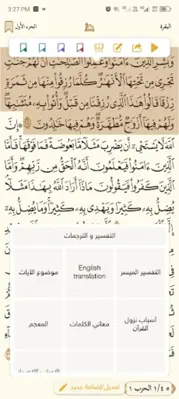 3:27 PM
البقرة
الجزء الأول
وَبَشِّرِ الَّذِينَ ءَامَنُوا وَعَمِلُوا الصَّالِحَاتِ أَنَّ لَهُمْ جَنَّاتٍ
تَجْرِي مِن تَحْتِهَا الْأَنْهَارُ كُلَّمَا رُزِقُوا مِنْهَا مِن ثَمَرَةٍ
رِّزْقًا قَالُوا هَٰذَا الَّذِي رُزِقْنَا مِن قَبْلُ وَأُتُوا بِهِ مُتَشَابِهًا
وَلَهُمْ فِيهَا أَزْوَاجٌ مُّطَهَّرَةٌ وَهُمْ فِيهَا خَالِدُونَ ۞ إِنَّ
اللَّهَ لَا يَسْتَحْيِي أَن يَضْرِبَ مَثَلًا مَّا بَعُوضَةً فَمَا فَوْقَهَا فَأَمَّا
الَّذِينَ ءَامَنُوا فَيَعْلَمُونَ أَنَّهُ الْحَقُّ مِن رَّبِّهِمْ وَأَمَّا
الَّذِينَ كَفَرُوا فَيَقُولُونَ مَاذَا أَرَادَ اللَّهُ بِهَٰذَا مَثَلًا
يُضِلُّ بِهِ كَثِيرًا وَيَهْدِي بِهِ كَثِيرًا وَمَا يُضِلُّ بِهِ
التفسير و الترجمات
التفسير الميسر
English translation
موضوع الآيات
أسباب نزول القرآن
معاني الكلمات
المعجم
٥
١/٤ الحزب ١
تعديل لإضاءة جديد